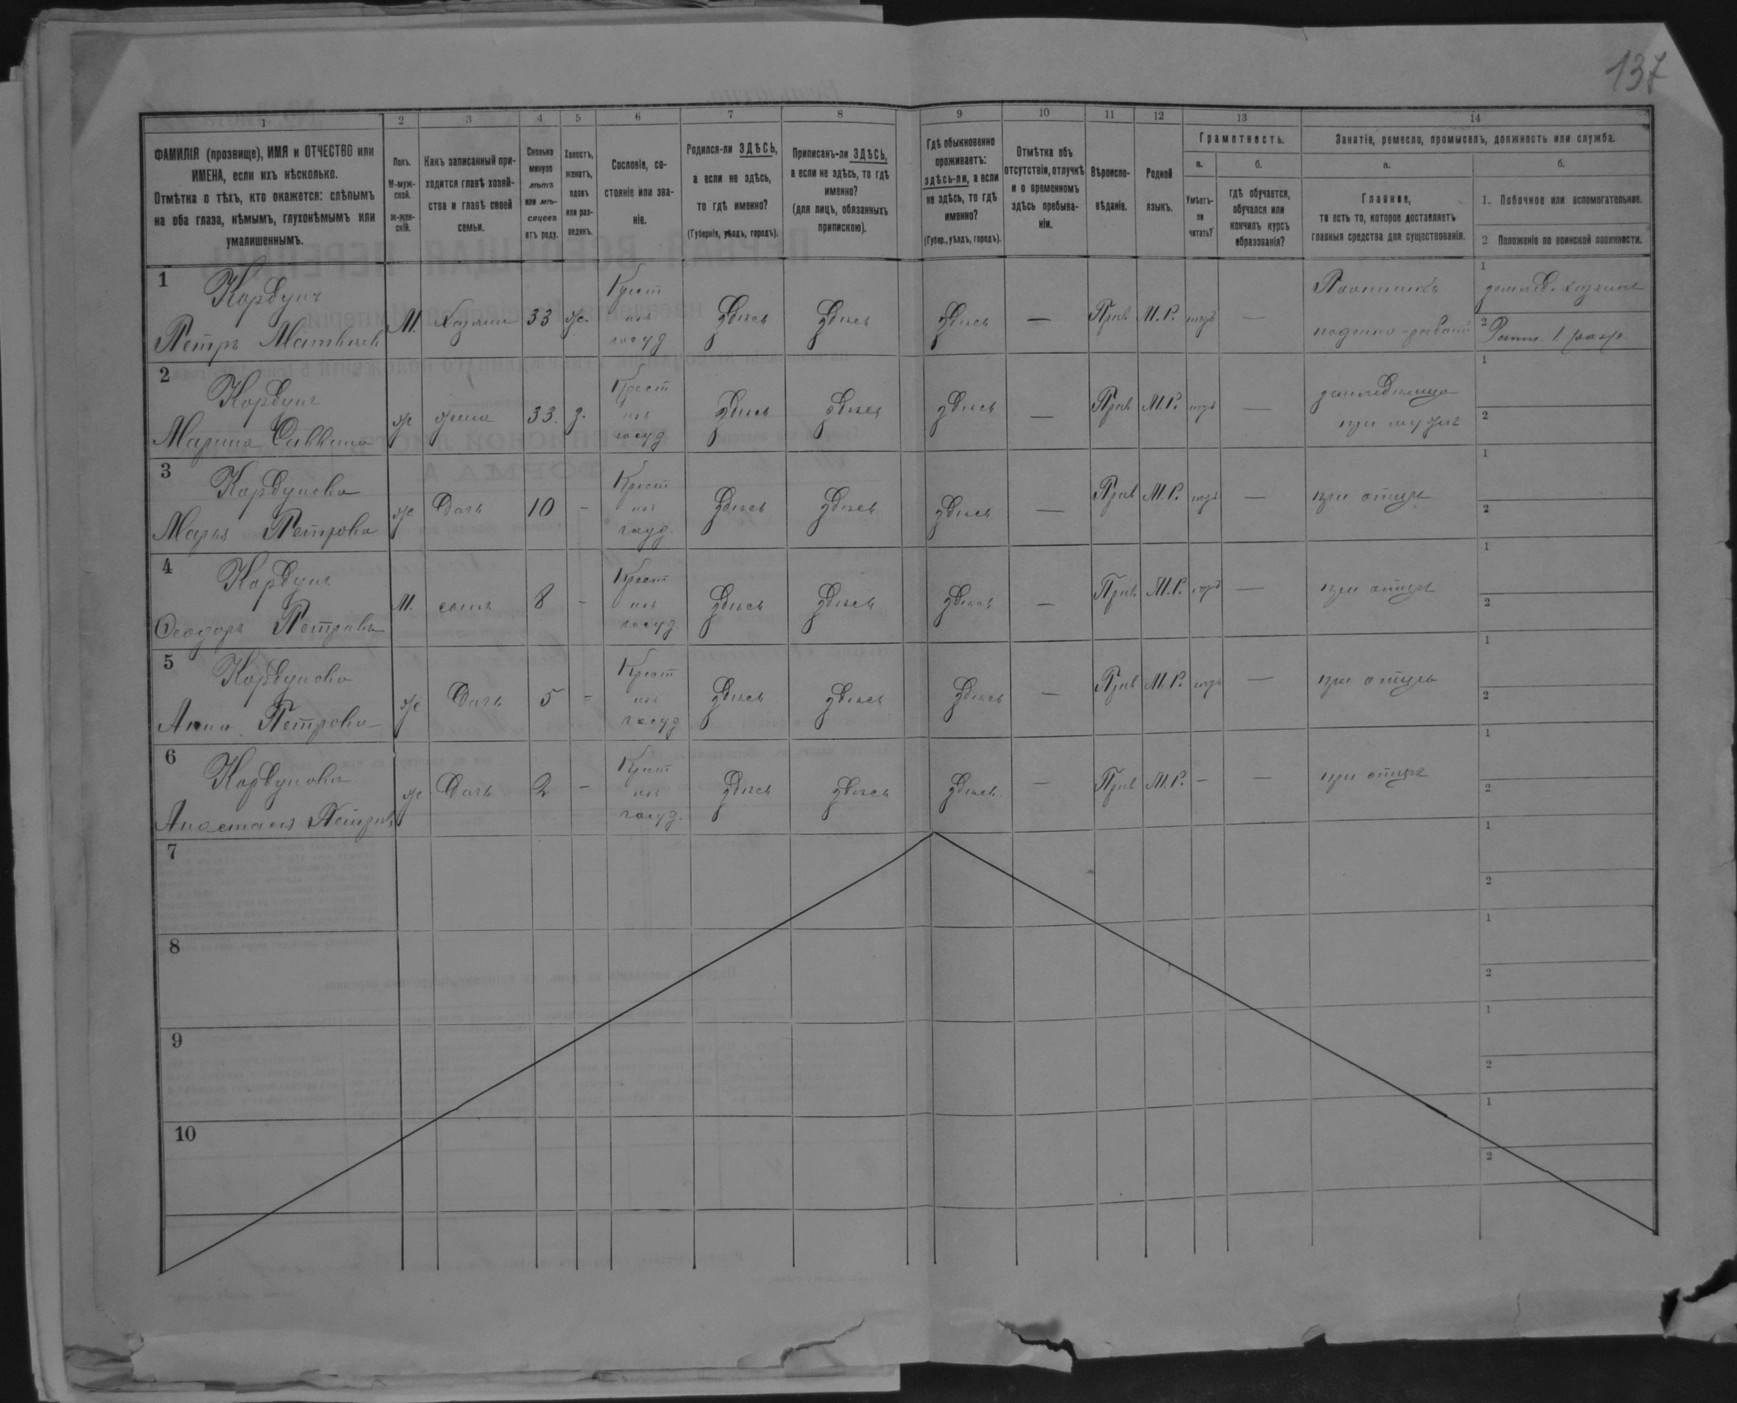 137
1 2 3 4 5 6 7 8 9 10 11 12 13 14
ФАМИЛІЯ (прозвище), ИМЯ и ОТЧЕСТВО или
ИМЕНА, если ихъ нѣсколько.
Отмѣтка о тѣхъ, кто окажется: слѣпымъ
на оба глаза, нѣмымъ, глухонѣмымъ или
умалишеннымъ.
Полъ.
М-муж-
ской.
ж-жен-
скій.
Какъ записанный при-
ходится главѣ хозяй-
ства и главѣ своей
семьи.
Сколько
минуло
лѣтъ
или мѣ-
сяцевъ
отъ роду.
Холостъ,
женатъ,
вдовъ
или раз-
веденъ.
Сословіе, со-
стояніе или зва-
ніе.
Родился-ли ЗДѢСЬ,
а если не здѣсь,
то гдѣ именно?
(Губернія, уѣздъ, городъ).
Приписанъ-ли ЗДѢСЬ,
а если не здѣсь, то гдѣ
именно?
(для лицъ, обязанныхъ
припискою).
Гдѣ обыкновенно
проживаетъ:
здѣсь-ли, а если
не здѣсь, то гдѣ
именно?
(Губер., уѣздъ, городъ).
Отмѣтка объ
отсутствіи, отлучкѣ
и о временномъ
здѣсь пребыва-
ніи.
Вѣроиспо-
вѣданіе.
Родной
языкъ.
Грамотность.
а. б.
Умѣетъ-
ли
читать?
гдѣ обучается,
обучался или
кончилъ курсъ
образованія?
Занятіе, ремесло, промыселъ, должность или служба.
а. б.
Главное,
то есть то, которое доставляетъ
главныя средства для существованія.
1. Побочное или вспомогательное.
2 Положеніе по воинской повинности.
1
Корбунъ
Петръ
М. Хозяинъ 33 ж.
Крест
изъ
госуд.
здѣсь здѣсь здѣсь — Прав М.Р. —
1
2
2
Корбунъ
Марина Саввина
ж жена 33 з.
Крест
изъ
госуд
здѣсь здѣсь здѣсь — Прав М.Р. —
при мужѣ
1
2
3
Корбунова
Марья Петрова
ж дочь 10 -
Крест
изъ
госуд.
здѣсь здѣсь здѣсь — Прав М.Р. — при отцѣ
1
2
4
Корбунъ
Ѳеодоръ Петровъ
М. сынъ 8 -
Крест
изъ
госуд
здѣсь здѣсь здѣсь — Прав М.Р. — при отцѣ
1
2
5
Корбунова
Анна Петрова
ж дочь 5 -
Крест
изъ
госуд
здѣсь здѣсь здѣсь — Прав М.Р. — при отцѣ
1
2
6
Корбунова
Анастасія Петрова
ж дочь 2 -
Крест
изъ
госуд.
здѣсь здѣсь здѣсь — Прав М.Р. — — при отцѣ
1
2
7
1
2
8
1
2
9
1
2
10
1
2